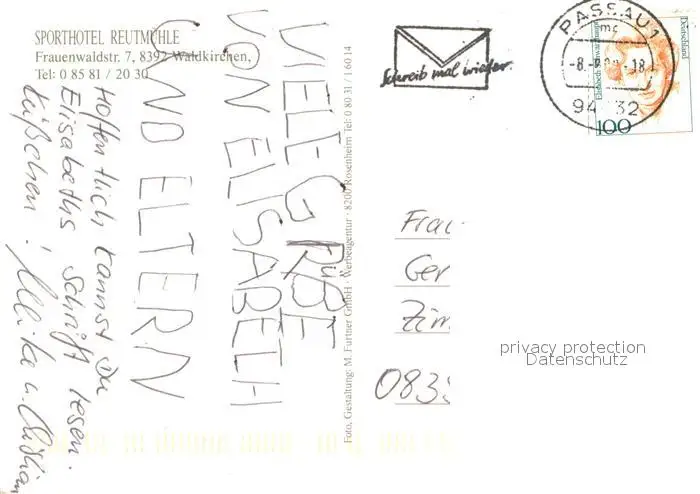 SPORTHOTEL REUTMÜHLE
Frauenwaldstr. 7, 8392 Waldkirchen,
Tel: 0 85 81 / 20 30
VIELE GRÜßE
VON ELISABETH
UND ELTERN
Hoffentlich kannst Du
Elisabeths Schrift lesen.
Küßchen!
Foto, Gestaltung: M. Furtner GmbH · Werbeagentur · 8200 Rosenheim Tel: 0 80 31 / 1 60 14
Schreib mal wieder.
PASSAU 1
mc
-8.-
-18
94 32
Deutschland
Elisabeth Schwarzhaupt
100
Frau
Ger
Zim
083
privacy protection
Datenschutz